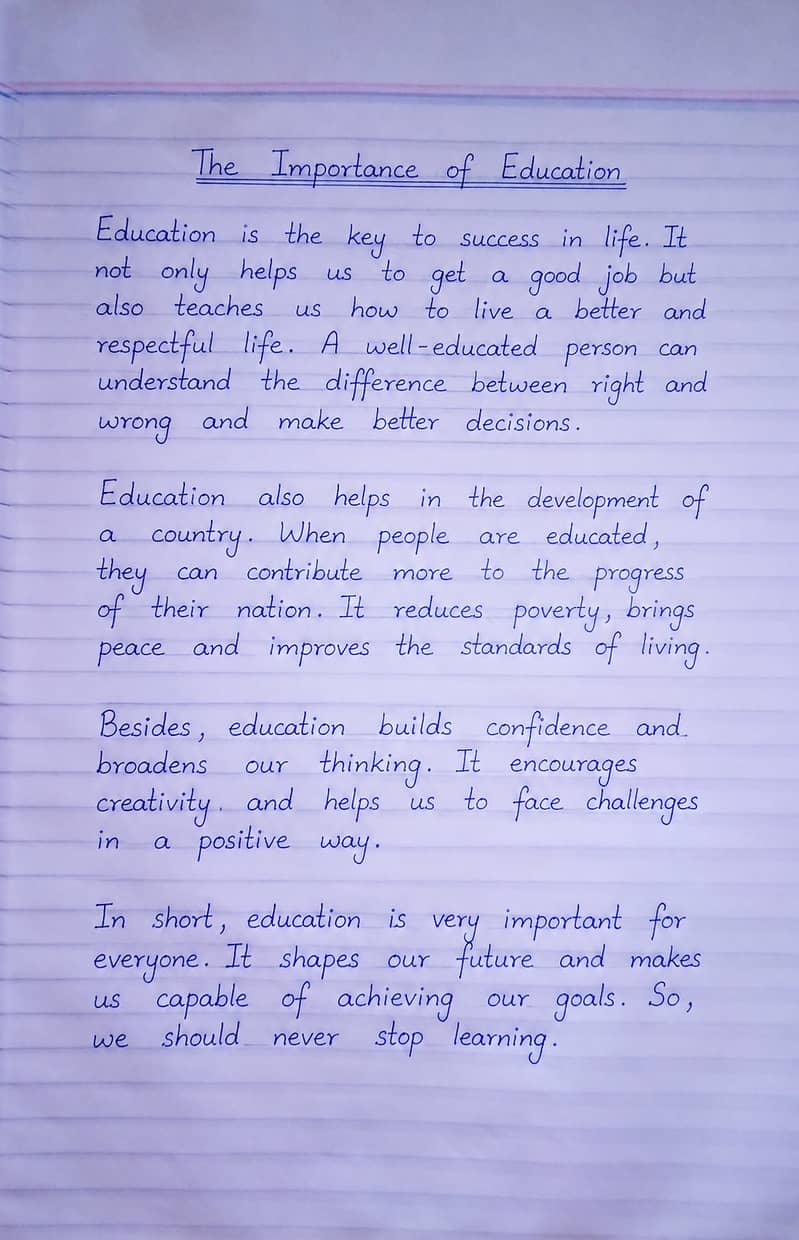 The Importance of Education
Education is the key to success in life. It
not only helps us to get a good job but
also teaches us how to live a better and
respectful life. A well-educated person can
understand the difference between right and
wrong and make better decisions.
Education also helps in the development of
a country. When people are educated,
they can contribute more to the progress
of their nation. It reduces poverty, brings
peace and improves the standards of living.
Besides, education builds confidence and
broadens our thinking. It encourages
creativity. and helps us to face challenges
in a positive way.
In short, education is very important for
everyone. It shapes our future and makes
us capable of achieving our goals. So,
we should never stop learning.